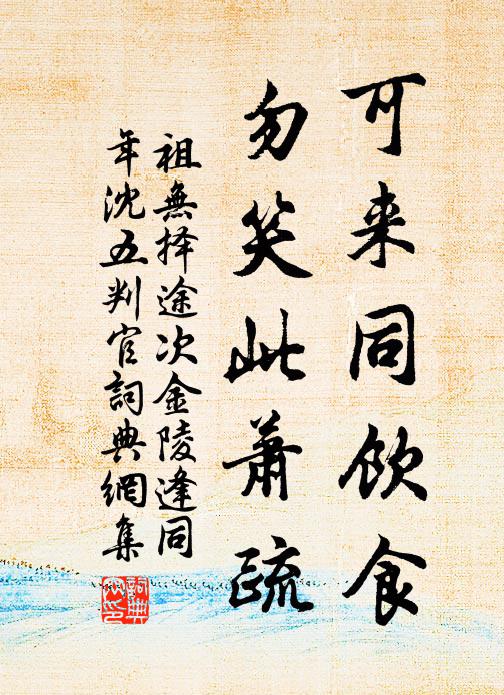 可来同饮食
勿笑此萧疏
祖無择途次金陵逢同
年沈五判官詞典網集